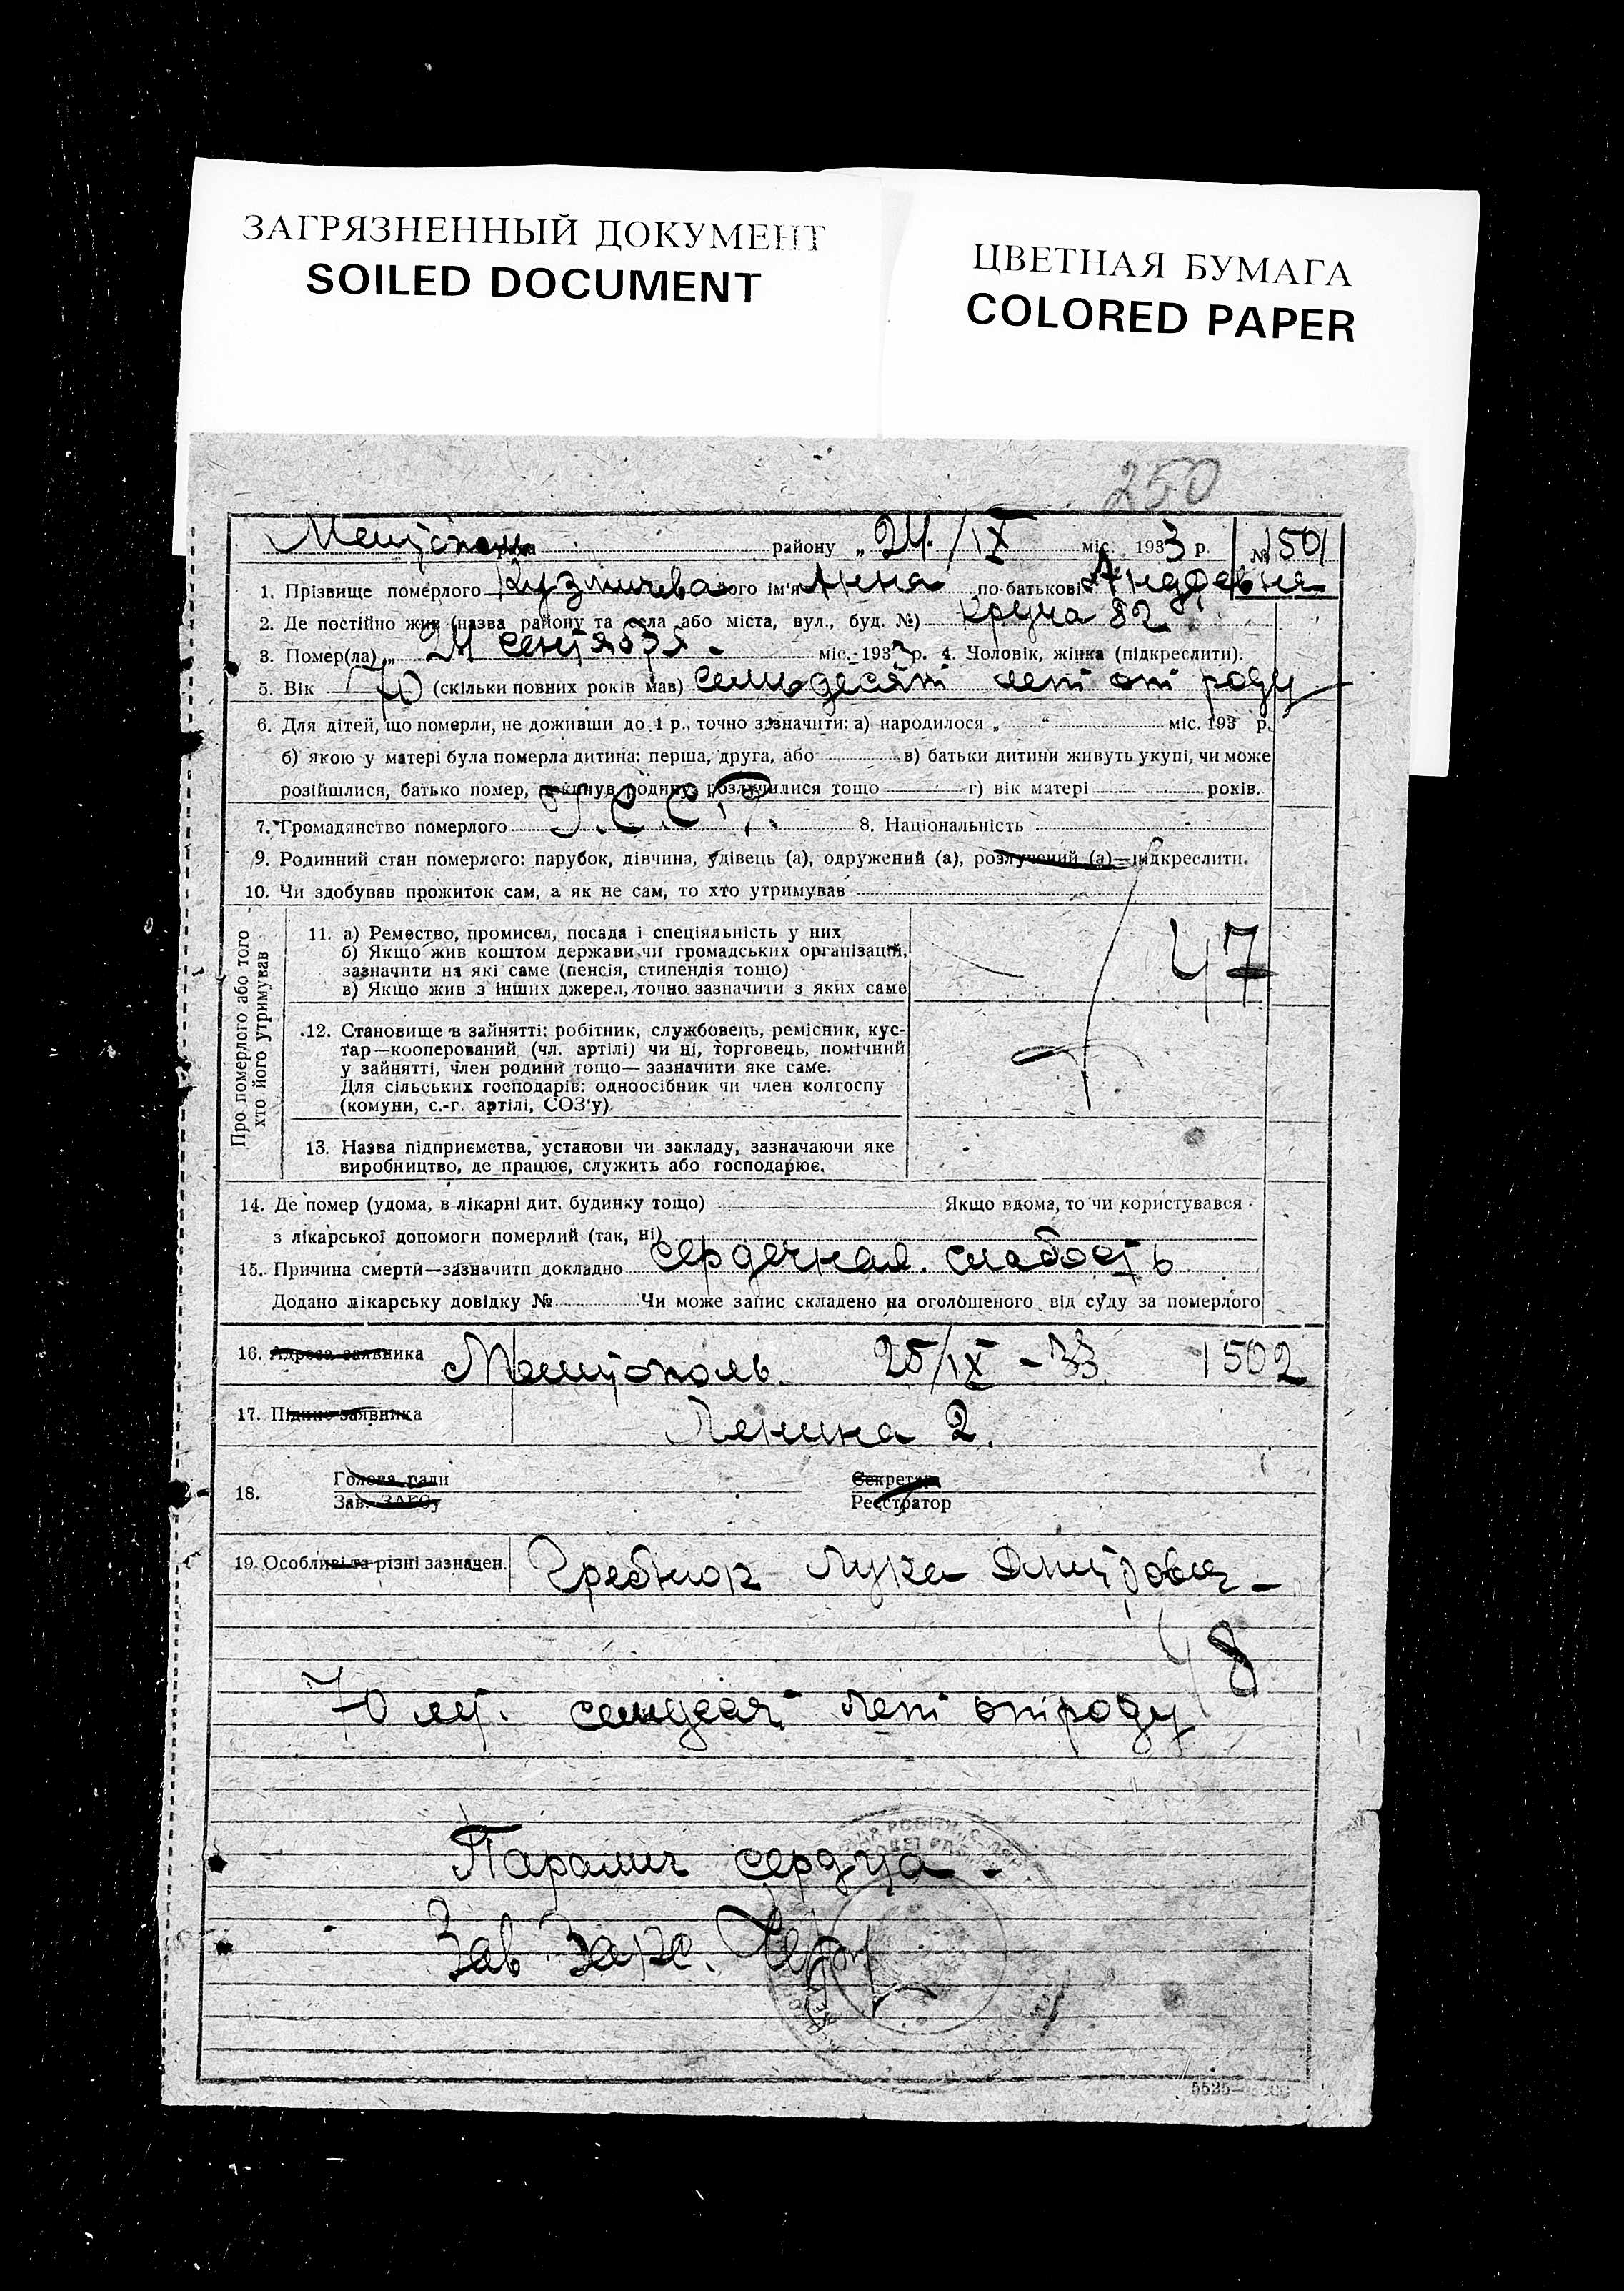 ЗАГРЯЗНЕННЫЙ ДОКУМЕНТ
SOILED DOCUMENT
ЦВЕТНАЯ БУМАГА
COLORED PAPER
250
Мелітополь району „24/IX міс. 1933 р. № 1501
1. Прізвище померлого Кузмичева його ім'я Анна по-батькові Андревна
2. Де постійно жив (назва району та села або міста, вул., буд. №) Круча 82
3. Помер(ла) „ 24 сентября міс. 1933 р. 4. Чоловік, жінка (підкреслити).
5. Вік 70 (скільки повних років мав) семьдесят лет от роду
6. Для дітей, що померли, не доживши до 1 р., точно зазначити: а) народилося „ “ міс. 193 р.
б) якою у матері була померла дитина: перша, друга, або в) батьки дитини живуть укупі, чи може
розійшлися, батько помер, покинув родину, розлучилися тощо г) вік матері років.
7. Громадянство померлого У.С.С.Р. 8. Національність
9. Родинний стан померлого: парубок, дівчина, удівець (а), одружений (а), розлучений (а)—підкреслити.
10. Чи здобував прожиток сам, а як не сам, то хто утримував
Про померлого або того
хто його утримував
11. а) Ремество, промисел, посада і спеціяльність у них
б) Якщо жив коштом держави чи громадських організацій,
зазначити на які саме (пенсія, стипендія тощо)
в) Якщо жив з інших джерел, точно зазначити з яких саме
47
12. Становище в зайнятті: робітник, службовець, ремісник, кус-
тар—кооперований (чл. артілі) чи ні, торговець, помічний
у зайнятті, член родини тощо— зазначити яке саме.
Для сільських господарів: одноосібник чи член колгоспу
(комуни, с.-г. артілі, СОЗ'у)
13. Назва підприємства, установи чи закладу, зазначаючи яке
виробництво, де працює, служить або господарює.
14. Де помер (удома, в лікарні дит. будинку тощо) Якщо вдома, то чи користувався
з лікарської допомоги померлий (так, ні)
15. Причина смерти—зазначити докладно сердечная слабость
Додано лікарську довідку № Чи може запис складено на оголошеного від суду за померлого
16. Адреса заявника Мелитополь. 25/IX - 33 1502
17. Підпис заявника Ленина 2.
18. Голова ради Секретар
Зав. ЗАГСу Реєстратор
19. Особливі та різні зазначен. Гребнюк Лука Дмитрович -
48
70 лет. семдесят лет от роду
Паралич сердца -
Зав Загс.
5525—